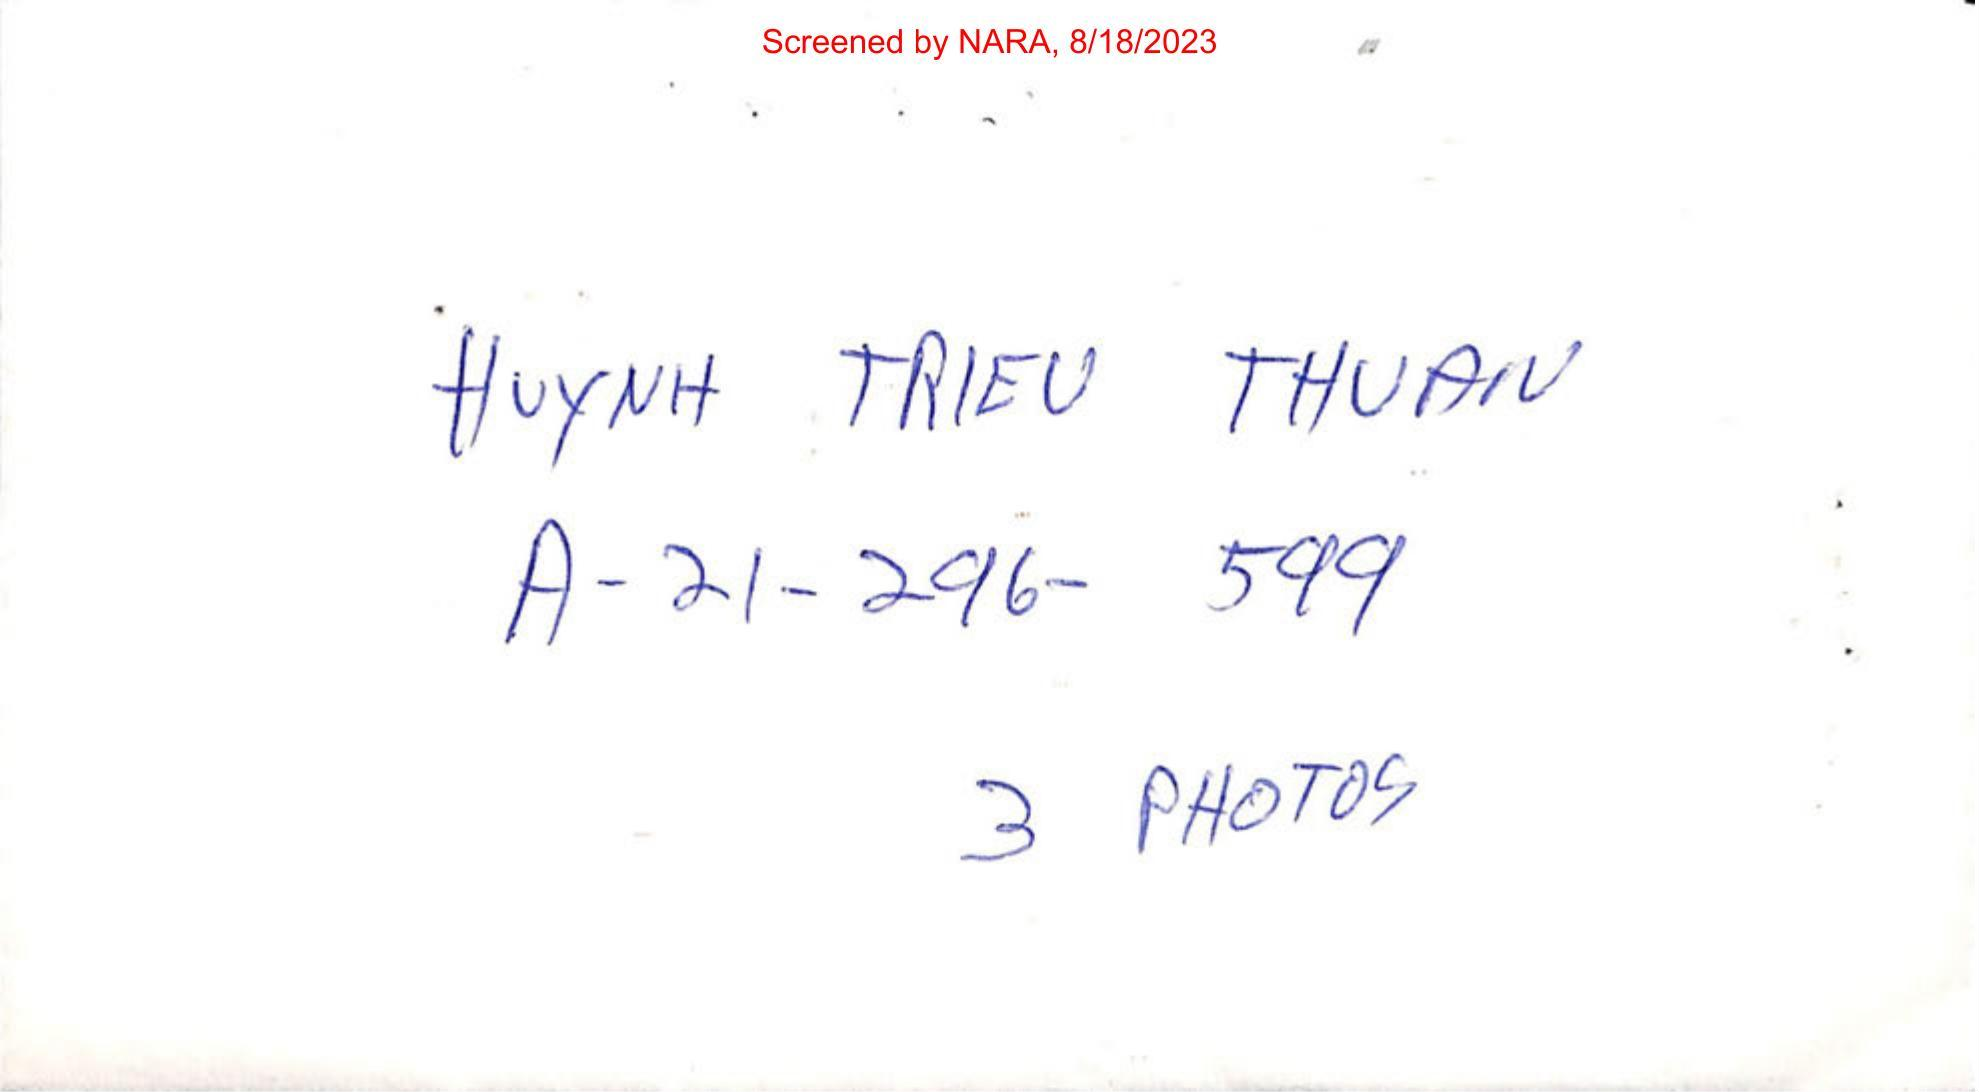 Screened by NARA, 8/18/2023
HUYNH TRIEU THUAN
A-21-296- 599
3 PHOTOS